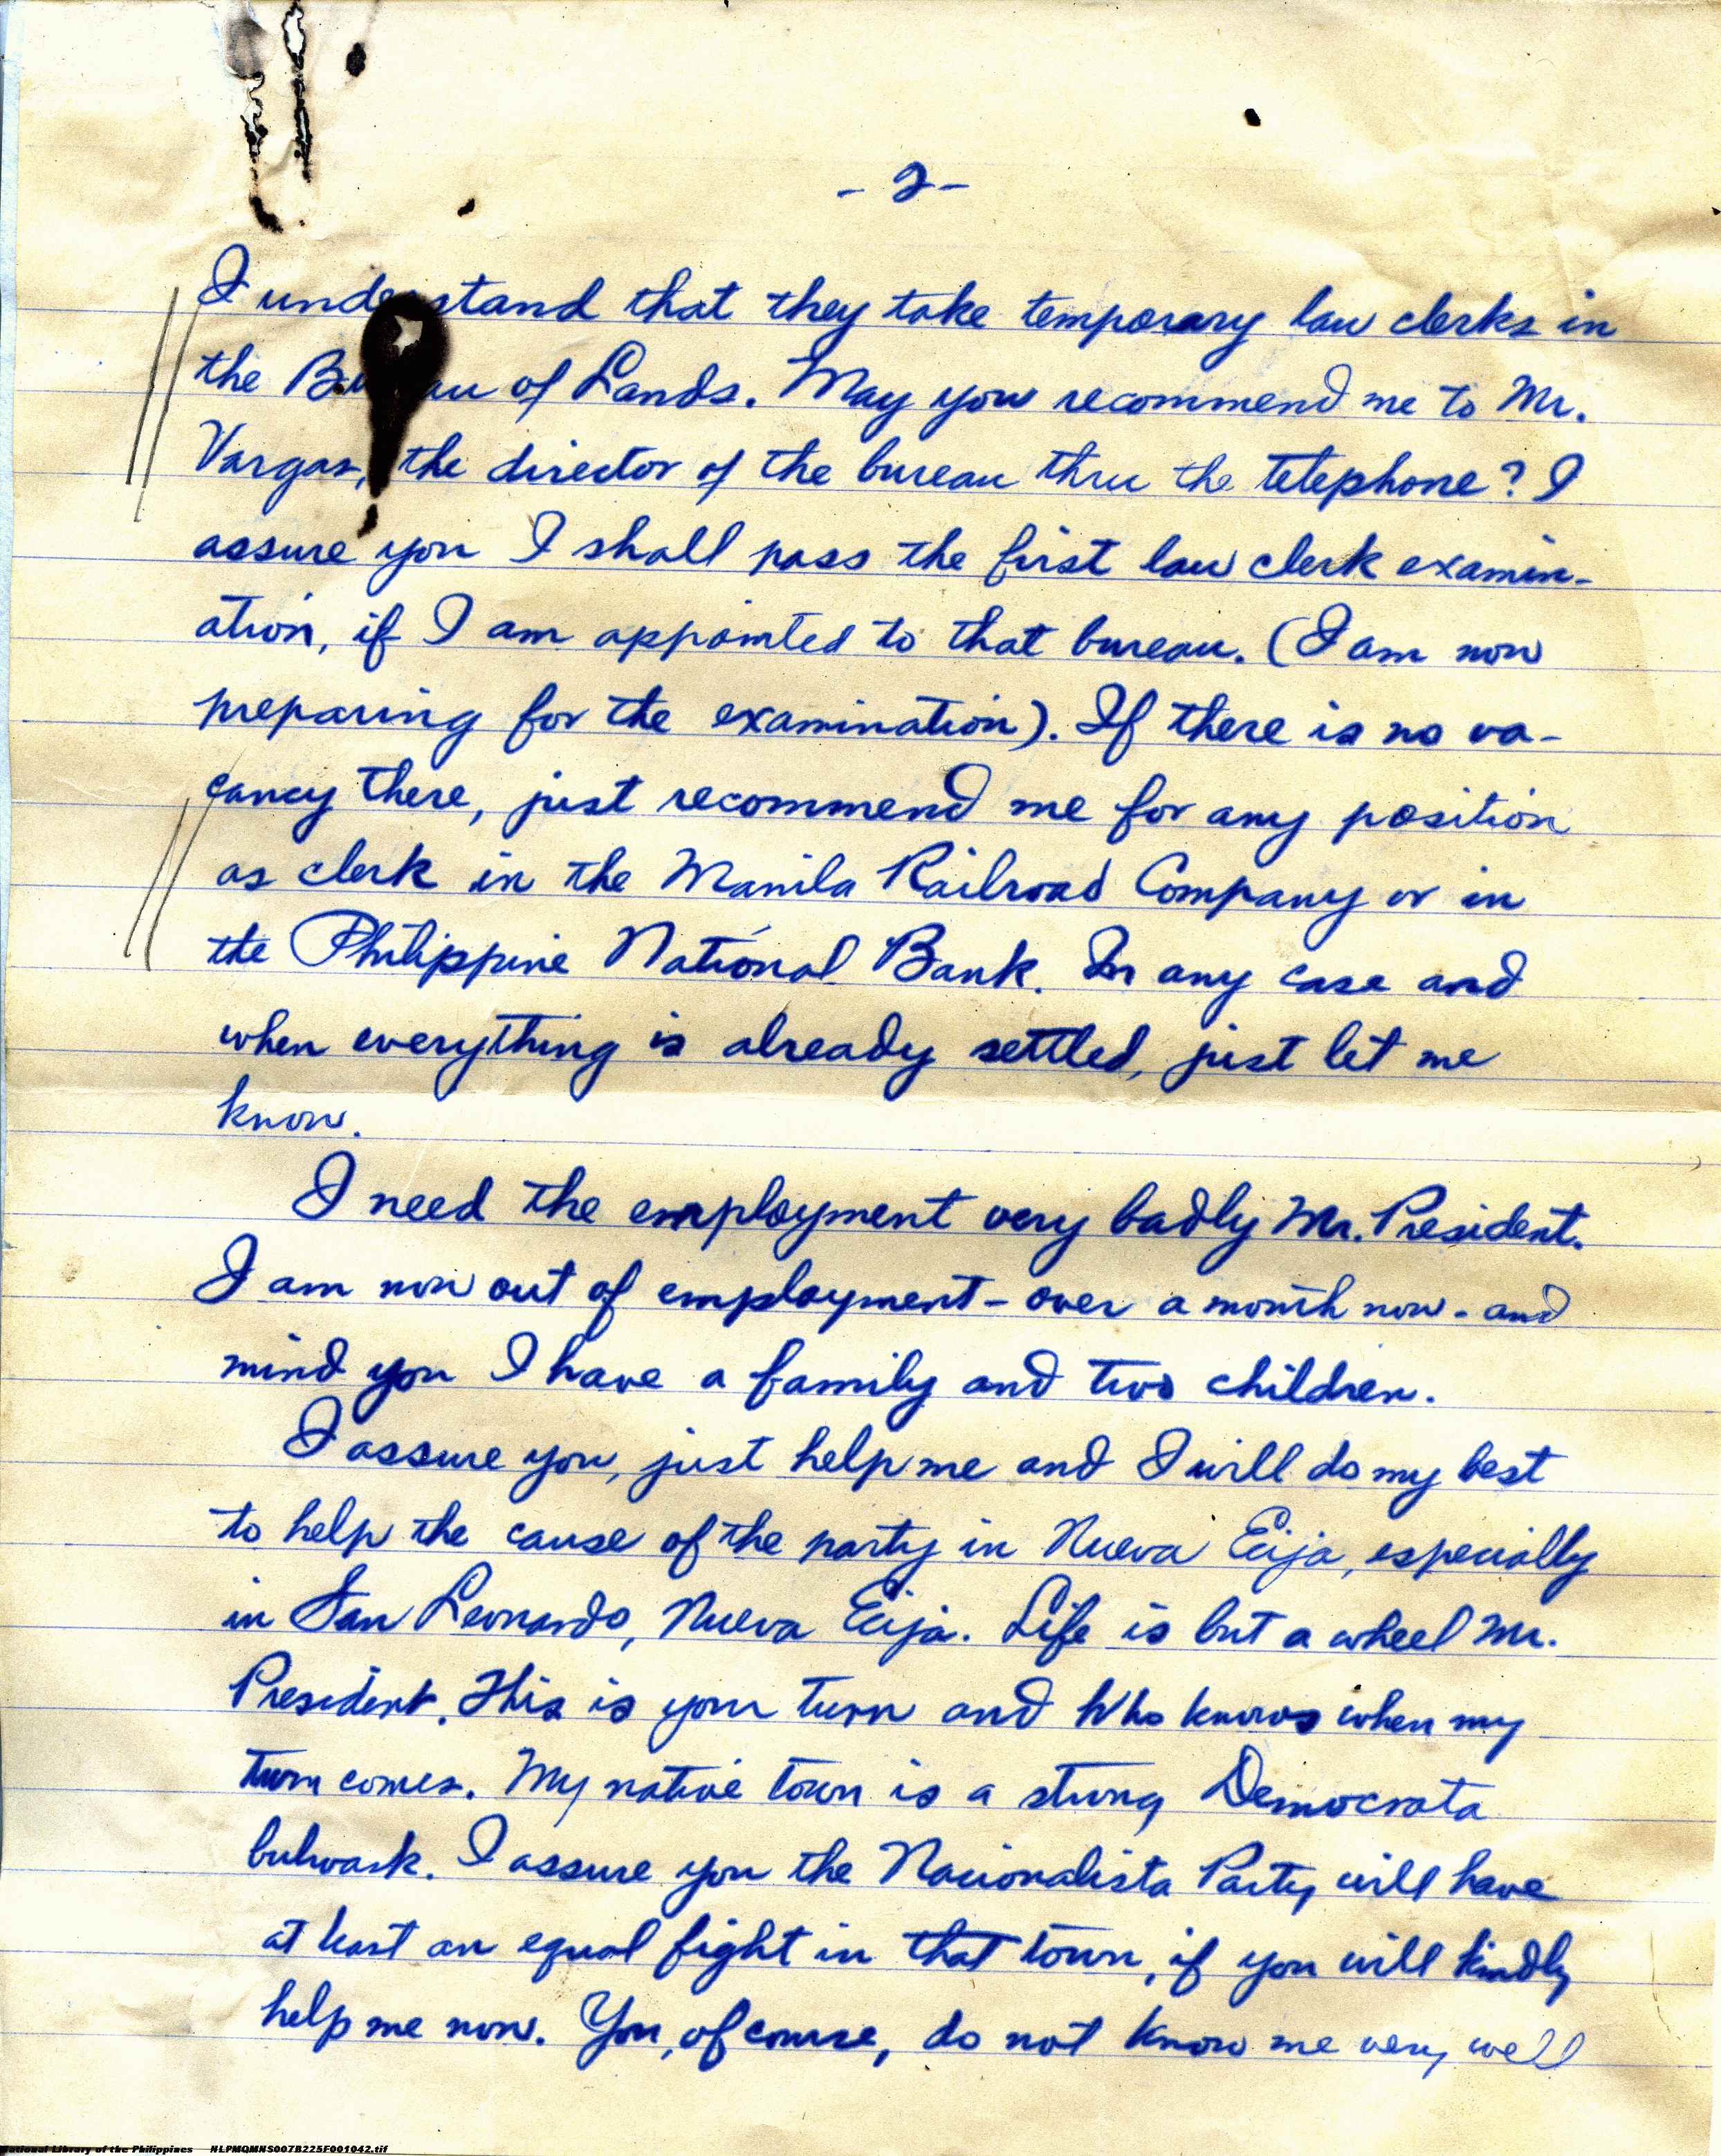 - 2 -
I understand that they take temporary law clerks in
the Bureau of Lands. May you recommend me to Mr.
Vargas, the director of the bureau thru the telephone? I
assure you I shall pass the first law clerk examin-
ation, if I am appointed to that bureau. (I am now
preparing for the examination). If there is no va-
cancy there, just recommend me for any position
as clerk in the Manila Railroad Company or in
the Philippine National Bank. In any case and
when everything is already settled, just let me
know.
I need the employment very badly Mr. President.
I am now out of employment - over a month now - and
mind you I have a family and two children.
I assure you, just help me and I will do my best
to help the cause of the party in Nueva Ecija, especially
in San Leonardo, Nueva Ecija. Life is but a wheel Mr.
President. This is your turn and who knows when my
turn comes. My native town is a strong Democrata
bulwark. I assure you the Nacionalista Party will have
at least an equal fight in that town, if you will kindly
help me now. You, of course, do not know me very well
National Library of the Philippines NLPMQMNS007B225F001042.tif